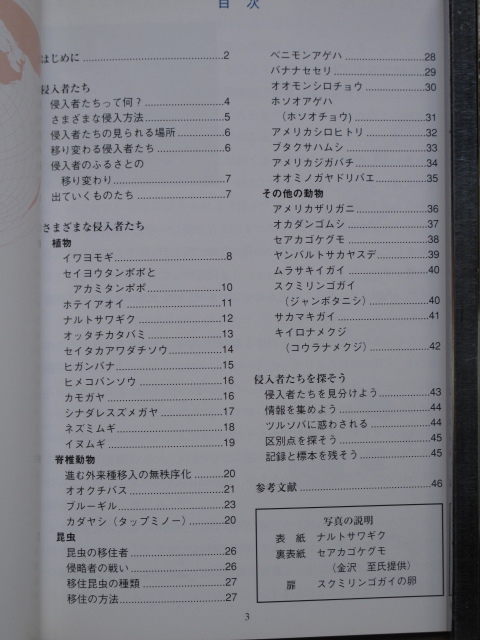 目 次
はじめに ........ 2
侵入者たち
侵入者たちって何？ ........ 4
さまざまな侵入方法 ........ 5
侵入者たちの見られる場所 ........ 6
移り変わる侵入者たち ........ 6
侵入者のふるさとの
移り変わり ........ 7
出ていくものたち ........ 7
さまざまな侵入者たち
植物
イワヨモギ ........ 8
セイヨウタンポポと
アカミタンポポ ........ 10
ホテイアオイ ........ 11
ナルトサワギク ........ 12
オッタチカタバミ ........ 13
セイタカアワダチソウ ........ 14
ヒガンバナ ........ 15
ヒメコバンソウ ........ 16
カモガヤ ........ 16
シナダレスズメガヤ ........ 17
ネズミムギ ........ 18
イヌムギ ........ 19
脊椎動物
進む外来種移入の無秩序化 ........ 20
オオクチバス ........ 21
ブルーギル ........ 23
カダヤシ（タップミノー） ........ 20
昆虫
昆虫の移住者 ........ 26
侵略者の戦い ........ 26
移住昆虫の種類 ........ 27
移住の方法 ........ 27
ベニモンアゲハ ........ 28
バナナセセリ ........ 29
オオモンシロチョウ ........ 30
ホソオアゲハ
（ホソオチョウ） ........ 31
アメリカシロヒトリ ........ 32
ブタクサハムシ ........ 33
アメリカジガバチ ........ 34
オオミノガヤドリバエ ........ 35
その他の動物
アメリカザリガニ ........ 36
オカダンゴムシ ........ 37
セアカゴケグモ ........ 38
ヤンバルトサカヤスデ ........ 39
ムラサキイガイ ........ 40
スクミリンゴガイ
（ジャンボタニシ） ........ 40
サカマキガイ ........ 41
キイロナメクジ
（コウラナメクジ） ........ 42
侵入者たちを探そう
侵入者たちを見分けよう ........ 43
情報を集めよう ........ 44
ツルソバに惑わされる ........ 44
区別点を探そう ........ 45
記録と標本を残そう ........ 45
参考文献 ........ 46
写真の説明
表 紙 ナルトサワギク
裏表紙 セアカゴケグモ
（金沢 至氏提供）
扉 スクミリンゴガイの卵
3